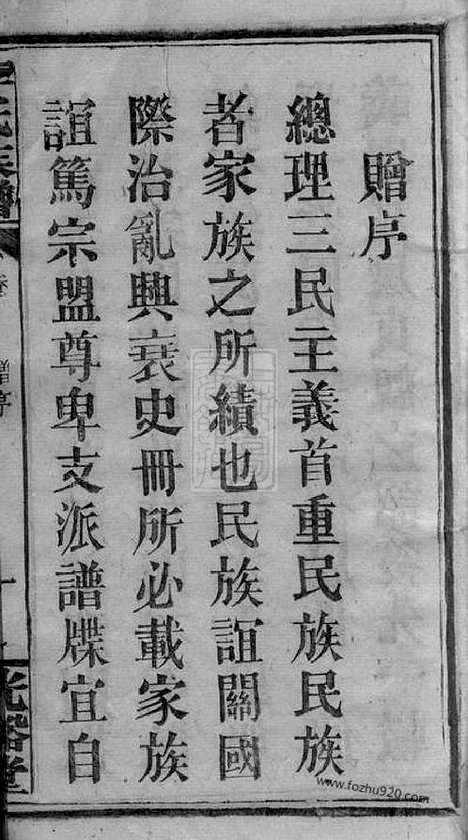 贈序
總理三民主義首重民族民族
者家族之所績也民族誼關國
際治亂興衰史冊所必載家族
誼篤宗盟尊卑支派譜牒宜自
氏族譜
贈序
www.fozhu920.com